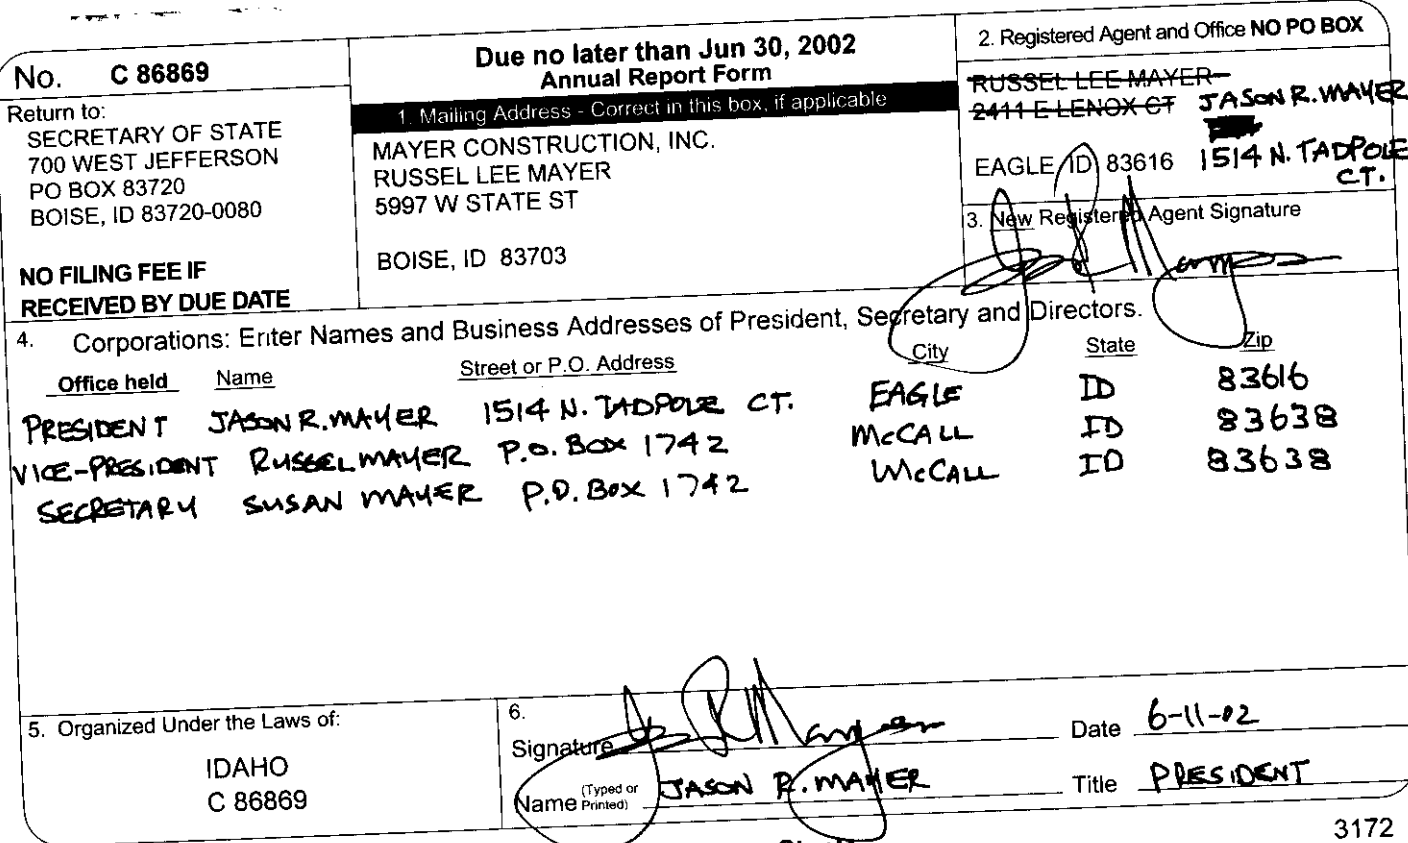 No. C 86869
Return to:
SECRETARY OF STATE
700 WEST JEFFERSON
PO BOX 83720
BOISE, ID 83720-0080
NO FILING FEE IF
RECEIVED BY DUE DATE
Due no later than Jun 30, 2002
Annual Report Form
1. Mailing Address - Correct in this box, if applicable
MAYER CONSTRUCTION, INC.
RUSSEL LEE MAYER
5997 W STATE ST
BOISE, ID 83703
2. Registered Agent and Office NO PO BOX
RUSSEL LEE MAYER
2411 E LENOX CT JASON R. MAYER
EAGLE ID 83616 1514 N. TADPOLE
CT.
3. New Registered Agent Signature
4. Corporations: Enter Names and Business Addresses of President, Secretary and Directors.
Office held Name Street or P.O. Address City State Zip
PRESIDENT JASON R. MAYER 1514 N. TADPOLE CT. EAGLE ID 83616
VICE-PRESIDENT RUSSEL MAYER P.O. BOX 1742 McCALL ID 83638
SECRETARY SUSAN MAYER P.O. BOX 1742 McCALL ID 83638
5. Organized Under the Laws of:
IDAHO
C 86869
6.
Signature Date 6-11-02
Name (Typed or Printed) JASON R. MAYER Title PRESIDENT
3172